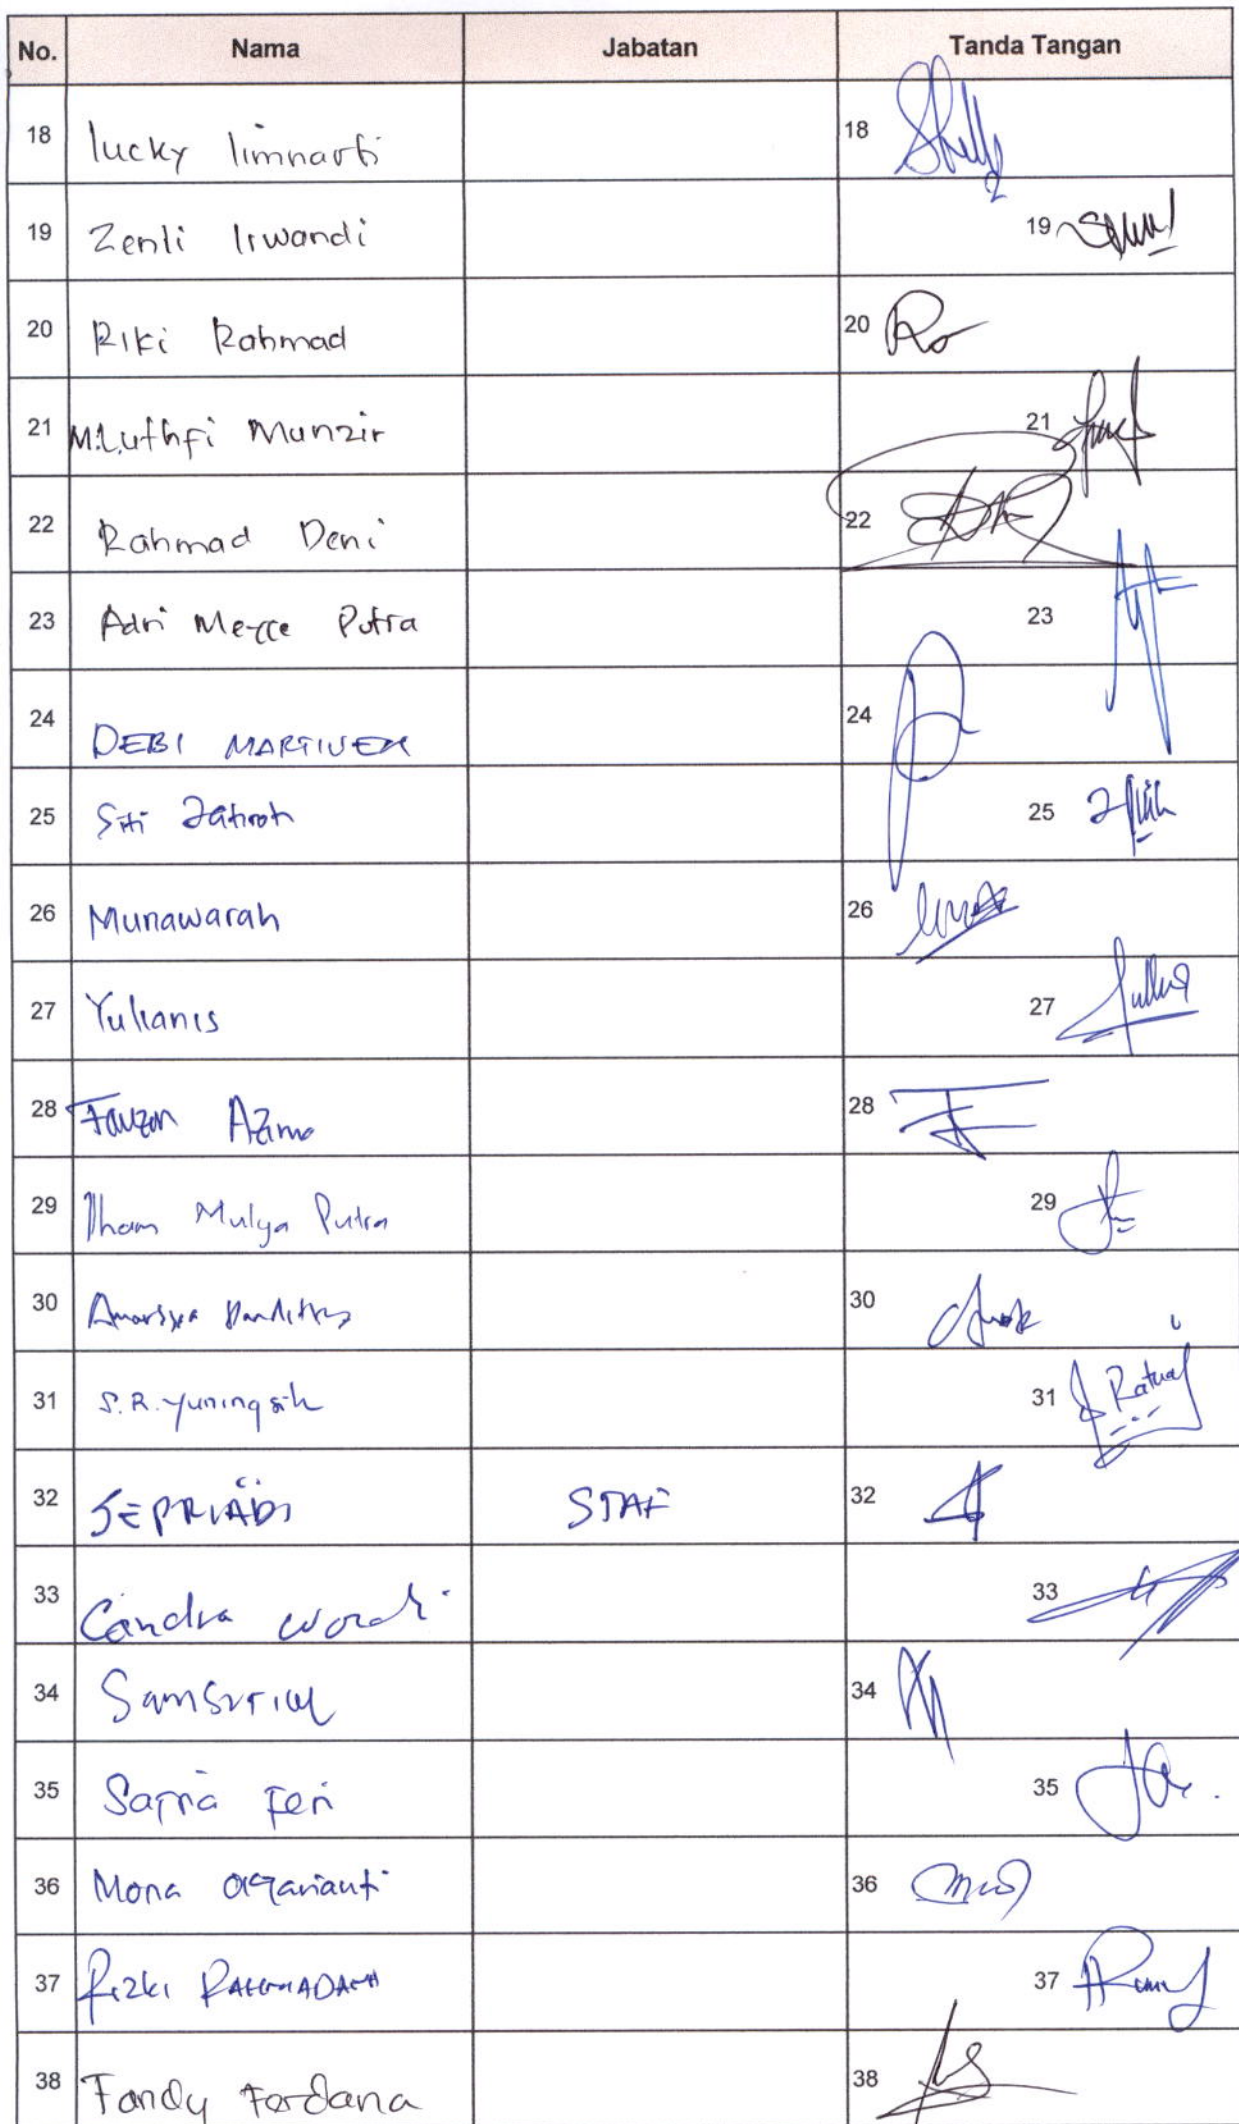 No. Nama Jabatan Tanda Tangan
18 lucky limnarti 18
19 Zenli Irwandi 19
20 Riki Rahmad 20
21 M.Luthfi Munzir 21
22 Rahmad Deni 22
23 Adri Putra 23
24 DEBI 24
25 Siti Zahroh 25
26 Munawarah 26
27 Yulianis 27
28 Fauzan Azima 28
29 Ilham Mulya Putra 29
30 30
31 S.R. Yuningsih 31 Ratna
32 JEPRIADI STAF 32
33 Candra 33
34 34
35 Feri 35
36 Mona 36
37 Rizki RAHMADANI 37
38 Fandy Fordana 38